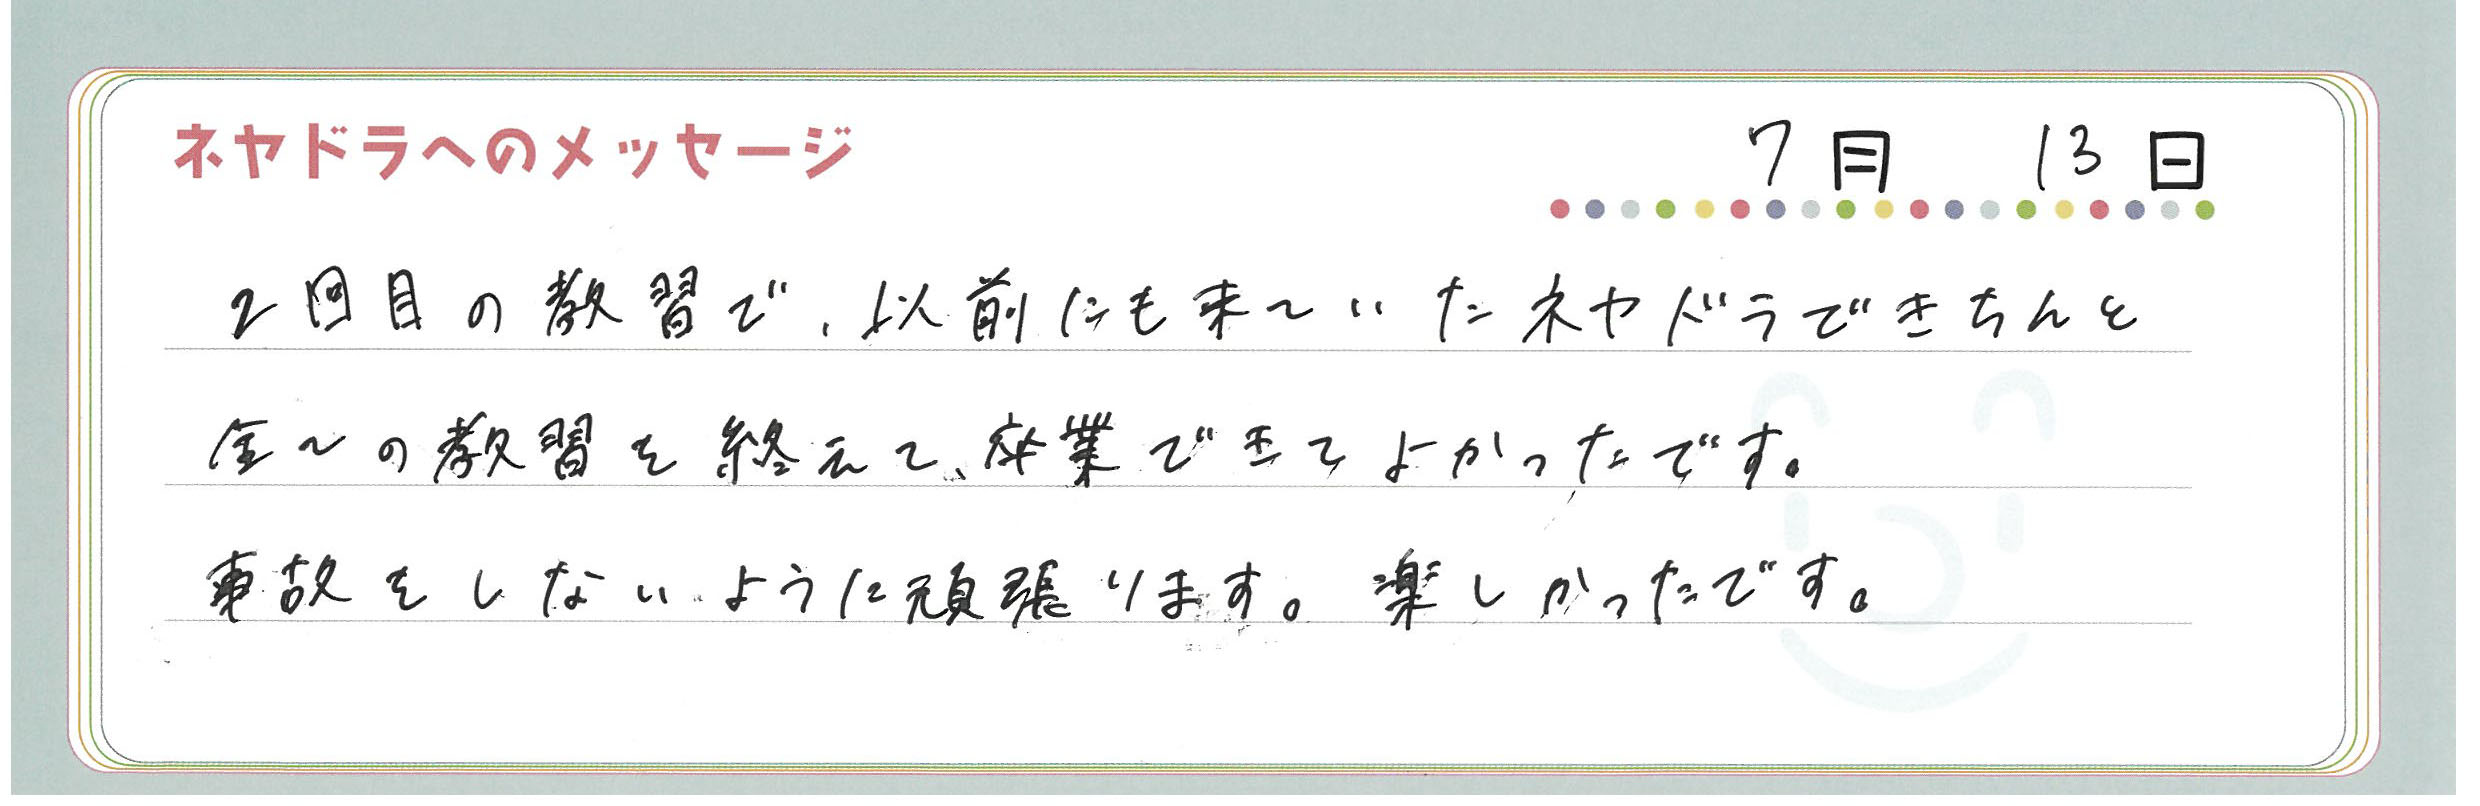 ネヤドラへのメッセージ
7月 13日
2回目の教習で、以前にも来ていたネヤドラできちんと
全ての教習を終えて、卒業できてよかったです。
事故をしないように頑張ります。楽しかったです。